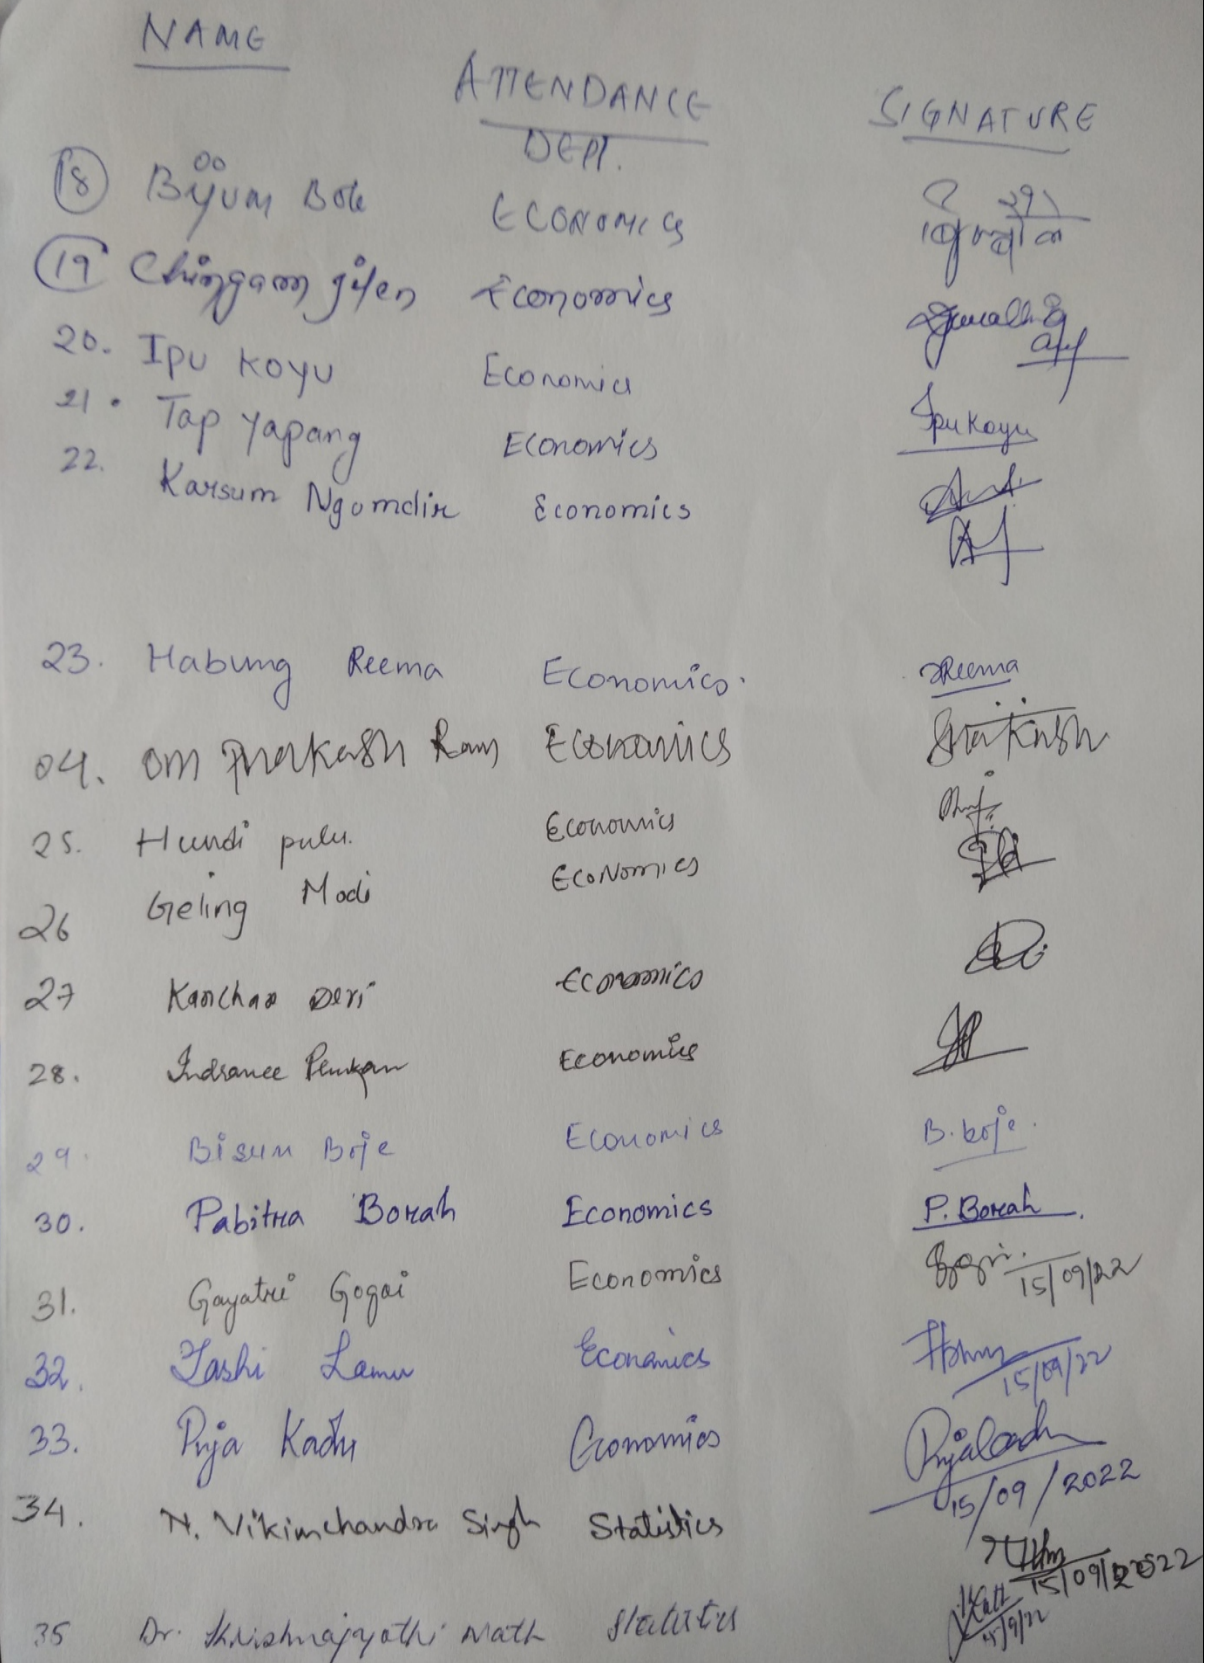 NAME
ATTENDANCE
DEPT.
SIGNATURE
18 Bijum Bole ECONOMICS
19 Chinggam jilen Economics
20. Ipu Koyu Economics
Ipu Koyu
21. Tap Yapang Economics
22. Karsum Ngomdir Economics
23. Habung Reema Economics. Reema
04. Om Prakash Ram Economics Prakash
25. Hundi pulu. Economics
26 Geling Modi Economics
27 Kanchan Deri Economics
28. Indranee Penkan Economics
29. Bisum Boje Economics B. boje.
30. Pabitra Borah Economics P. Borah.
31. Gayatri Gogoi Economics 15/09/22
32. Tashi Lamu Economics 15/09/22
33. Puja Kadu Economics
15/09/2022
34. N. Vikimchandra Singh Statistics
15/09/2022
35 Dr. Krishnajyothi Nath Statistics
15/9/22